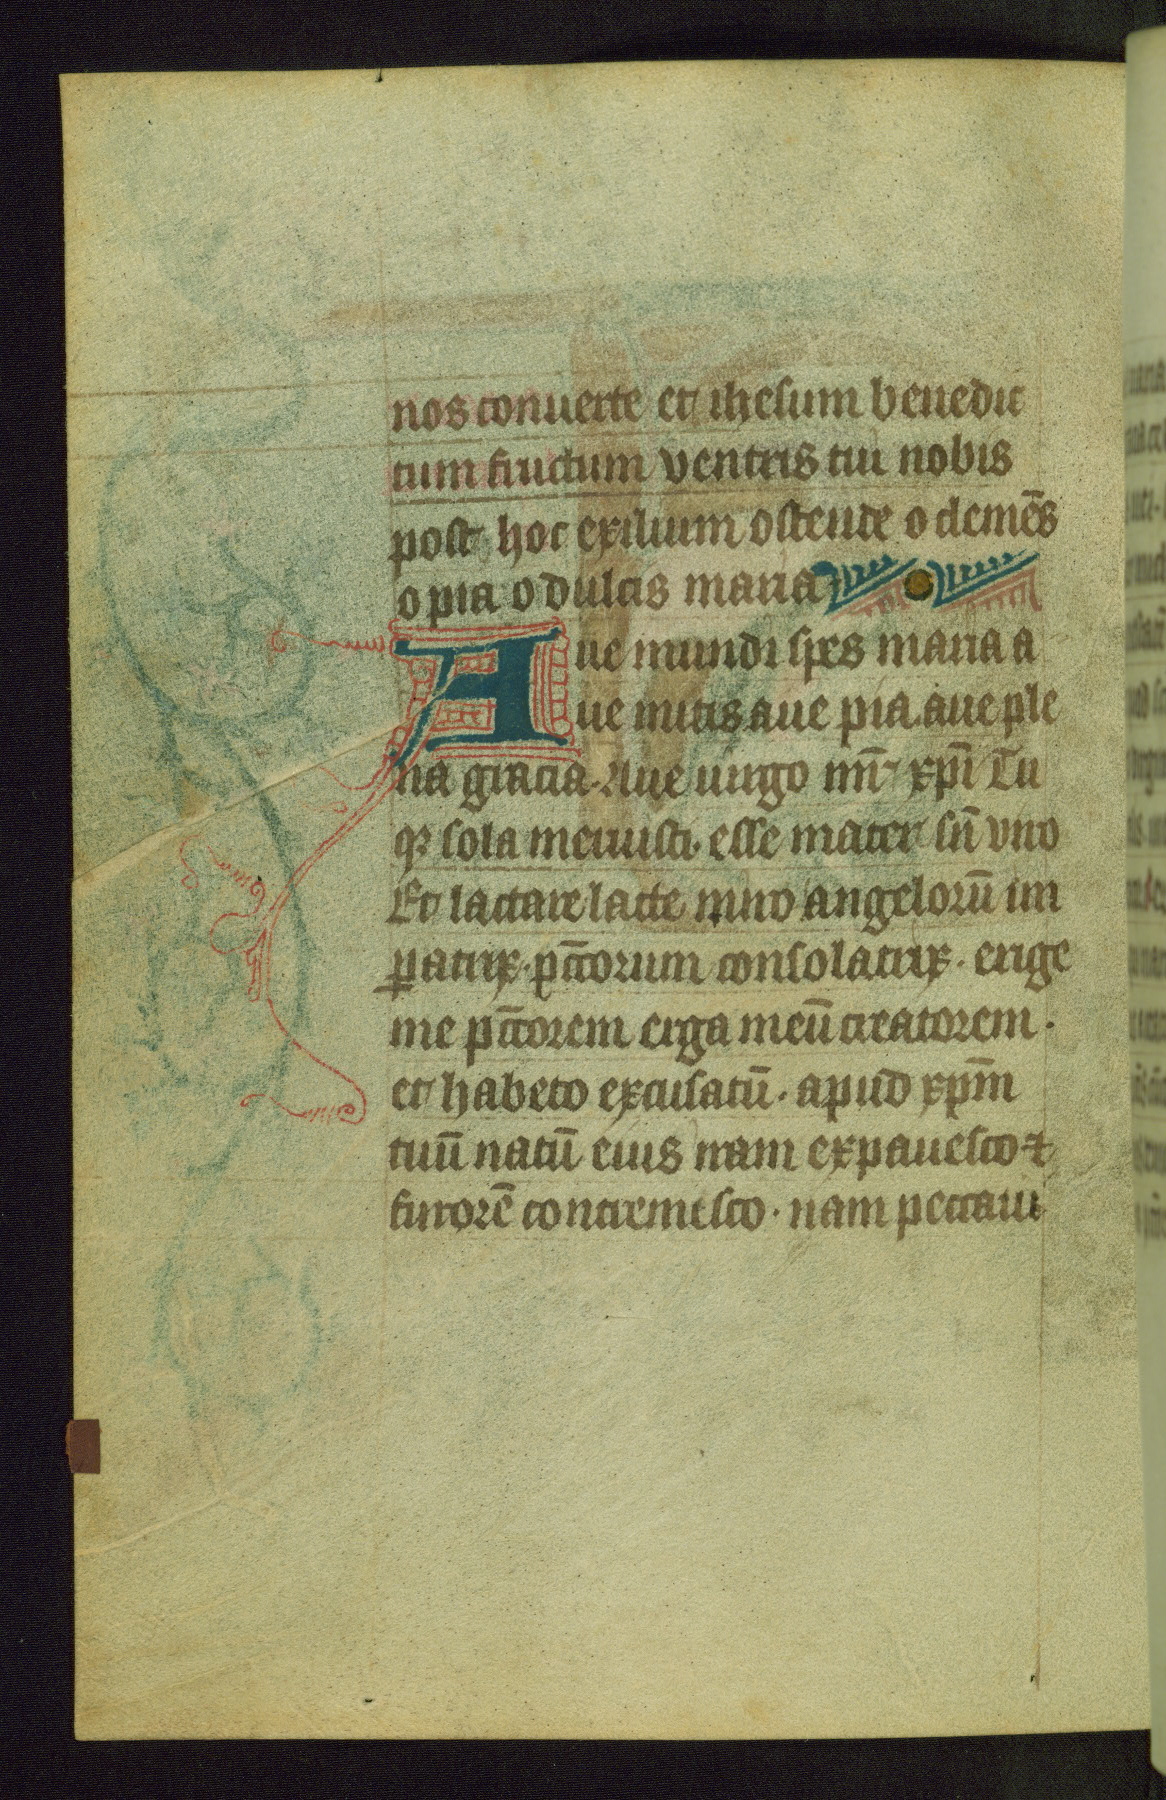 nos conuerte et ihesum benedic
tum fructum ventris tui nobis
post hoc exilium ostende o clemēs
o pia o dulcis maria
Aue mundi spes maria a
ue mitis aue pia aue ple
na gracia. Aue uirgo xp̄i Tu
sola meruisti esse mater viro
Et lactare lacte miro angelorū im
patrix. pc̄torum consolatrix. erige
me pc̄torem erga meū creatorem.
et habeto excusatū. apud xp̄m
tuū natū eius iram expauesco ⁊
furorē contremesco. nam peccaui